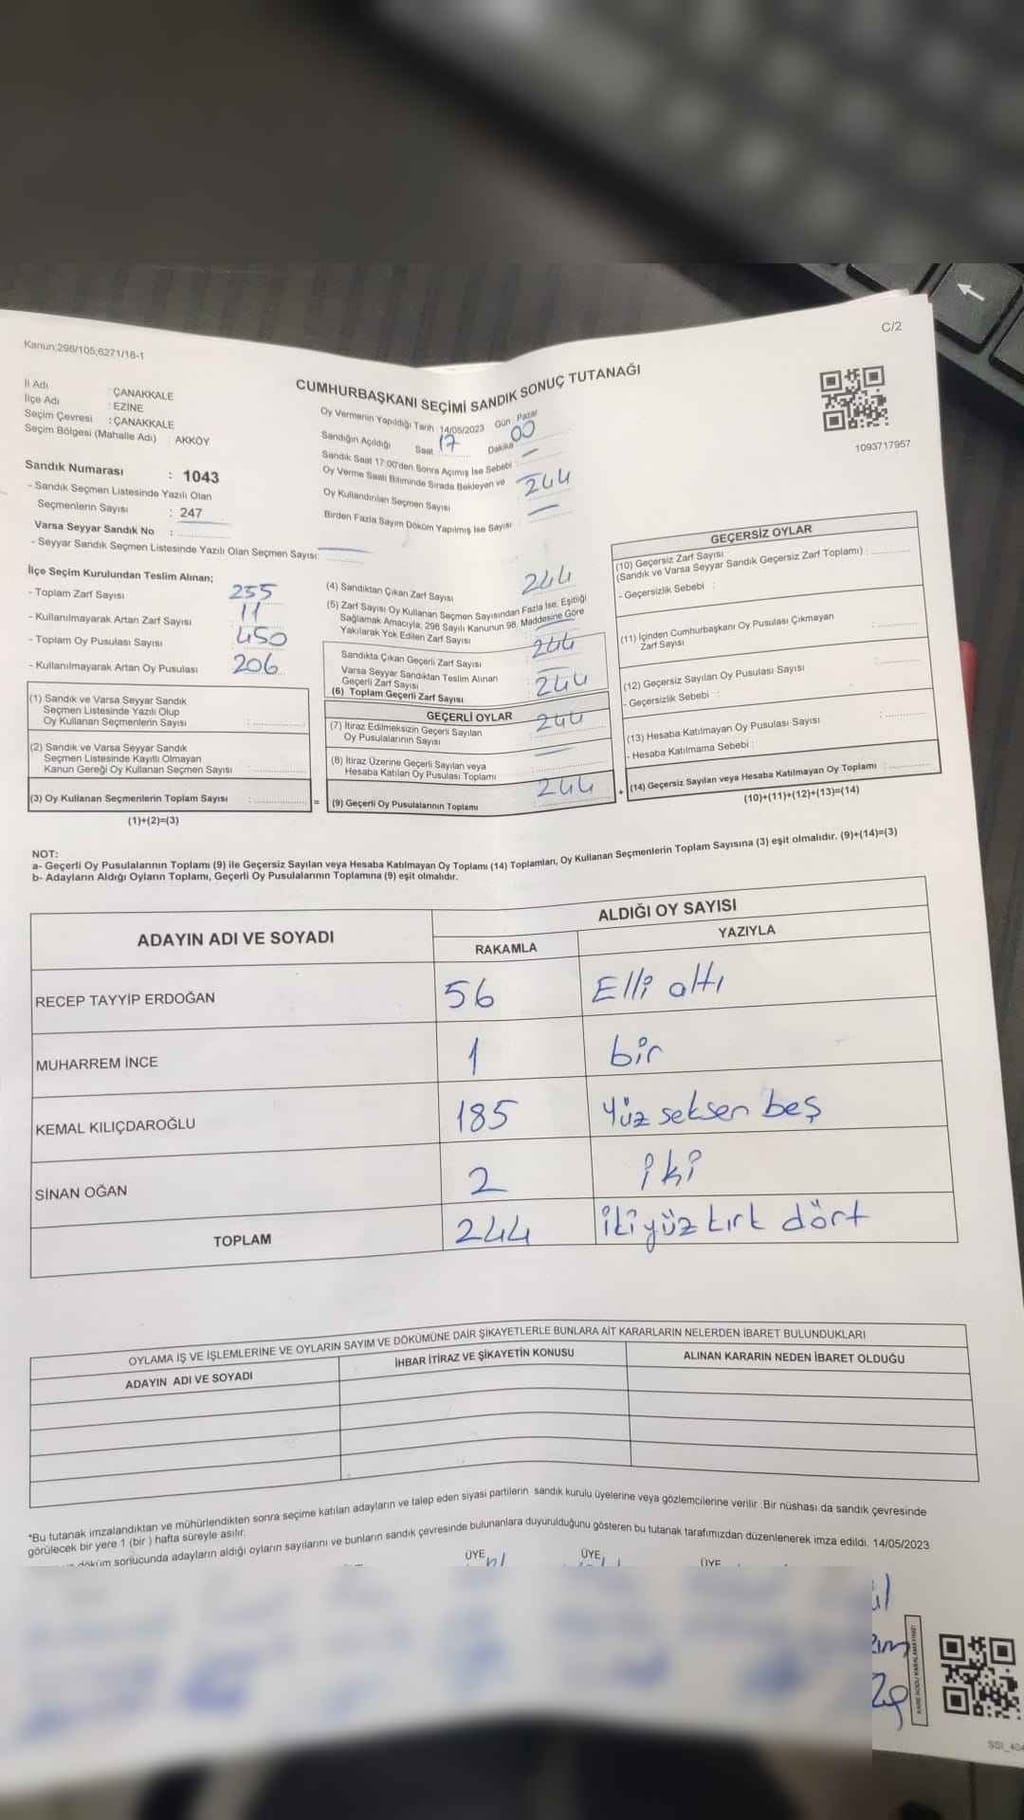 C/2
Kanun;298/105;6271/18-1
CUMHURBAŞKANI SEÇİMİ SANDIK SONUÇ TUTANAĞI
İl Adı : ÇANAKKALE
İlçe Adı : EZİNE
Seçim Çevresi : ÇANAKKALE
Seçim Bölgesi (Mahalle Adı) : AKKÖY
1093717957
Sandık Numarası : 1043
- Sandık Seçmen Listesinde Yazılı Olan
Seçmenlerin Sayısı : 247
Varsa Seyyar Sandık No :
- Seyyar Sandık Seçmen Listesinde Yazılı Olan Seçmen Sayısı:
Oy Vermenin Yapıldığı Tarih 14/05/2023 Gün : Pazar
Sandığın Açıldığı Saat 17 Dakika 00
Sandık Saat 17:00'den Sonra Açımış İse Sebebi :
Oy Verme Saati Bitiminde Sırada Bekleyen ve
Oy Kullandırılan Seçmen Sayısı 244
Birden Fazla Sayım Döküm Yapılmış İse Sayısı
İlçe Seçim Kurulundan Teslim Alınan;
- Toplam Zarf Sayısı 255
- Kullanılmayarak Artan Zarf Sayısı 11
- Toplam Oy Pusulası Sayısı 450
- Kullanılmayarak Artan Oy Pusulası 206
(1) Sandık ve Varsa Seyyar Sandık
Seçmen Listesinde Yazılı Olup
Oy Kullanan Seçmenlerin Sayısı
(2) Sandık ve Varsa Seyyar Sandık
Seçmen Listesinde Kayıtlı Olmayan
Kanun Gereği Oy Kullanan Seçmen Sayısı
(3) Oy Kullanan Seçmenlerin Toplam Sayısı : =
(1)+(2)=(3)
(4) Sandıktan Çıkan Zarf Sayısı 244
(5) Zarf Sayısı Oy Kullanan Seçmen Sayısından Fazla İse, Eşitliği
Sağlamak Amacıyla; 298 Sayılı Kanunun 98. Maddesine Göre
Yakılarak Yok Edilen Zarf Sayısı
Sandıkta Çıkan Geçerli Zarf Sayısı 244
Varsa Seyyar Sandıktan Teslim Alınan
Geçerli Zarf Sayısı
(6) Toplam Geçerli Zarf Sayısı 244
GEÇERLİ OYLAR
(7) İtiraz Edilmeksizin Geçerli Sayılan
Oy Pusulalarının Sayısı 244
(8) İtiraz Üzerine Geçerli Sayılan veya
Hesaba Katılan Oy Pusulası Toplamı
(9) Geçerli Oy Pusulalarının Toplamı 244 +
GEÇERSİZ OYLAR
(10) Geçersiz Zarf Sayısı
(Sandık ve Varsa Seyyar Sandık Geçersiz Zarf Toplamı) :
- Geçersizlik Sebebi :
(11) İçinden Cumhurbaşkanı Oy Pusulası Çıkmayan
Zarf Sayısı
(12) Geçersiz Sayılan Oy Pusulası Sayısı
- Geçersizlik Sebebi :
(13) Hesaba Katılmayan Oy Pusulası Sayısı :
- Hesaba Katılmama Sebebi :
(14) Geçersiz Sayılan veya Hesaba Katılmayan Oy Toplamı
(10)+(11)+(12)+(13)=(14)
NOT:
a- Geçerli Oy Pusulalarının Toplamı (9) ile Geçersiz Sayılan veya Hesaba Katılmayan Oy Toplamı (14) Toplamları, Oy Kullanan Seçmenlerin Toplam Sayısına (3) eşit olmalıdır. (9)+(14)=(3)
b- Adayların Aldığı Oyların Toplamı, Geçerli Oy Pusulalarının Toplamına (9) eşit olmalıdır.
ADAYIN ADI VE SOYADI ALDIĞI OY SAYISI
RAKAMLA YAZIYLA
RECEP TAYYİP ERDOĞAN 56 Elli altı
MUHARREM İNCE 1 bir
KEMAL KILIÇDAROĞLU 185 Yüz seksen beş
SİNAN OĞAN 2 iki
TOPLAM 244 ikiyüz kırk dört
OYLAMA İŞ VE İŞLEMLERİNE VE OYLARIN SAYIM VE DÖKÜMÜNE DAİR ŞİKAYETLERLE BUNLARA AİT KARARLARIN NELERDEN İBARET BULUNDUKLARI
ADAYIN ADI VE SOYADI İHBAR İTİRAZ VE ŞİKAYETİN KONUSU ALINAN KARARIN NEDEN İBARET OLDUĞU
*Bu tutanak imzalandıktan ve mühürlendikten sonra seçime katılan adayların ve talep eden siyasi partilerin sandık kurulu üyelerine veya gözlemcilerine verilir. Bir nüshası da sandık çevresinde
görülecek bir yere 1 (bir) hafta süreyle asılır.
döküm sonucunda adayların aldığı oyların sayılarını ve bunların sandık çevresinde bulunanlara duyurulduğunu gösteren bu tutanak tarafımızdan düzenlenerek imza edildi. 14/05/2023
ÜYE ÜYE ÜYE